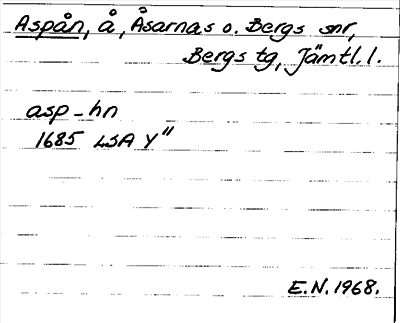 Aspån, å, Åsarnas o. Bergs snr,
Bergs tg, Jämtl. l.
asp-hn
1685 LSA Y"
E.N. 1968.